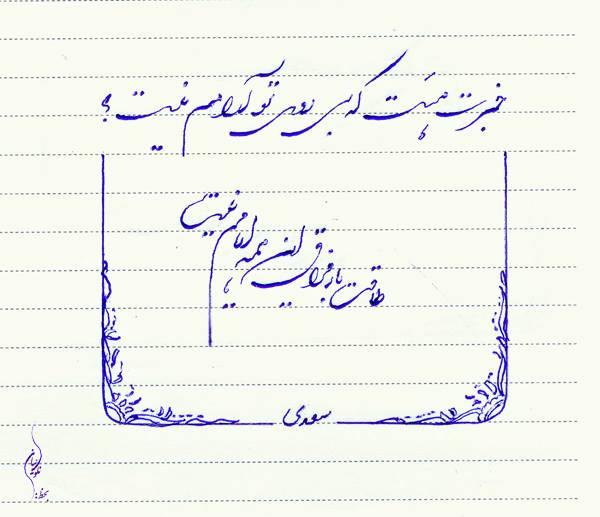 خبرت هست که بی روی تو آرامم نیست ؟
طاقت بار فراق این همه ایامم نیست
سعدی
بخط: